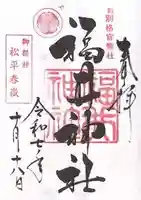 奉拝
別格官幣社
福井神社
福井神社
御祭神
松平春嶽
令和七年
十月十八日